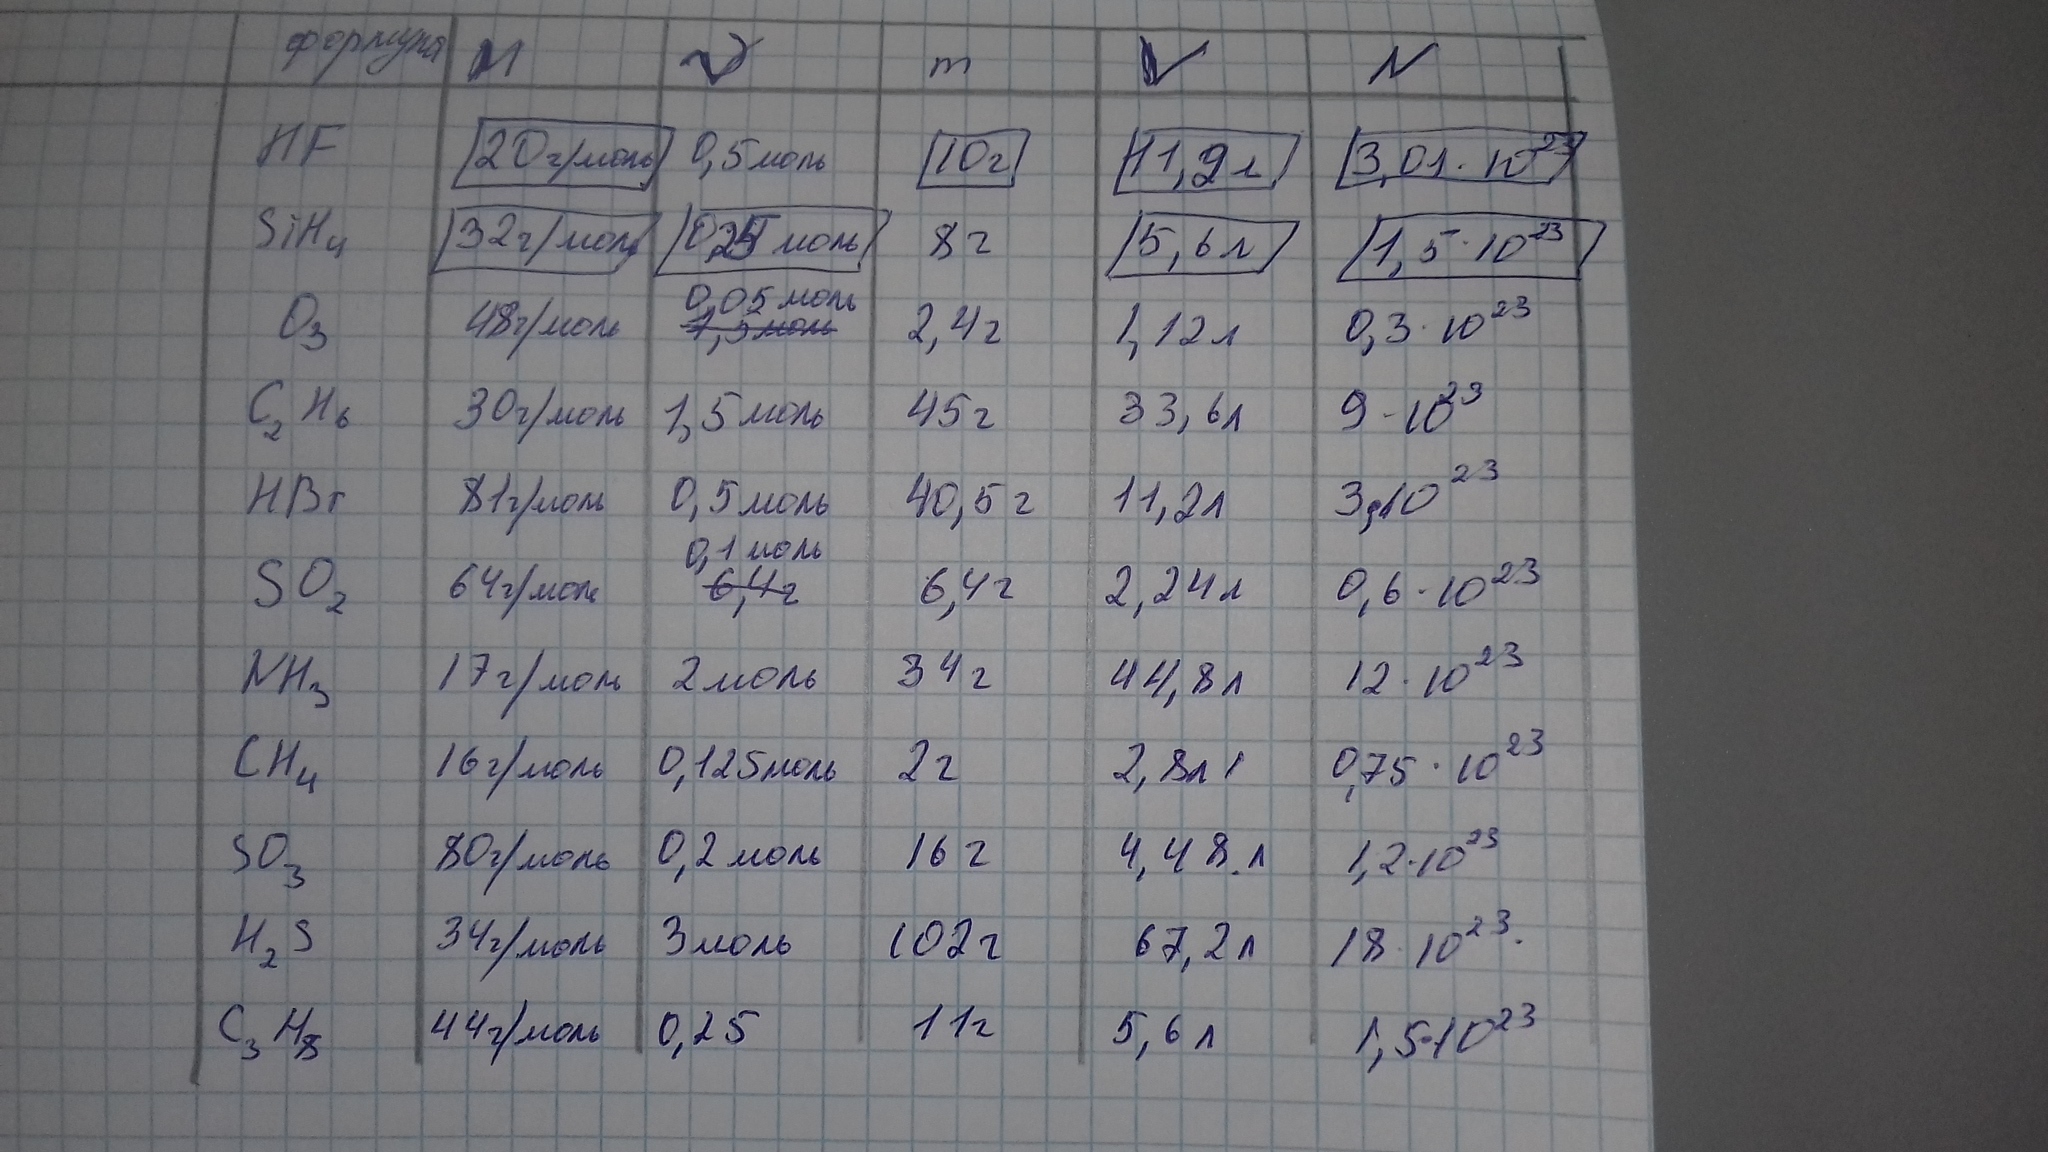 формула M ν m V N
HF 20г/моль 0,5моль 10г 11,2л 3,01·10²³
SiH₄ 32г/моль 0,25 моль 8г 5,6л 1,5·10²³
0,05моль
O₃ 48г/моль 1,5моль 2,4г 1,12л 0,3·10²³
C₂H₆ 30г/моль 1,5моль 45г 33,6л 9·10²³
HBr 81г/моль 0,5моль 40,5г 11,2л 3·10²³
0,1моль
SO₂ 64г/моль 6,4г 6,4г 2,24л 0,6·10²³
NH₃ 17г/моль 2моль 34г 44,8л 12·10²³
CH₄ 16г/моль 0,125моль 2г 2,8л 0,75·10²³
SO₃ 80г/моль 0,2моль 16г 4,48л 1,2·10²³
H₂S 34г/моль 3моль 102г 67,2л 18·10²³
C₃H₈ 44г/моль 0,25 11г 5,6л 1,5·10²³